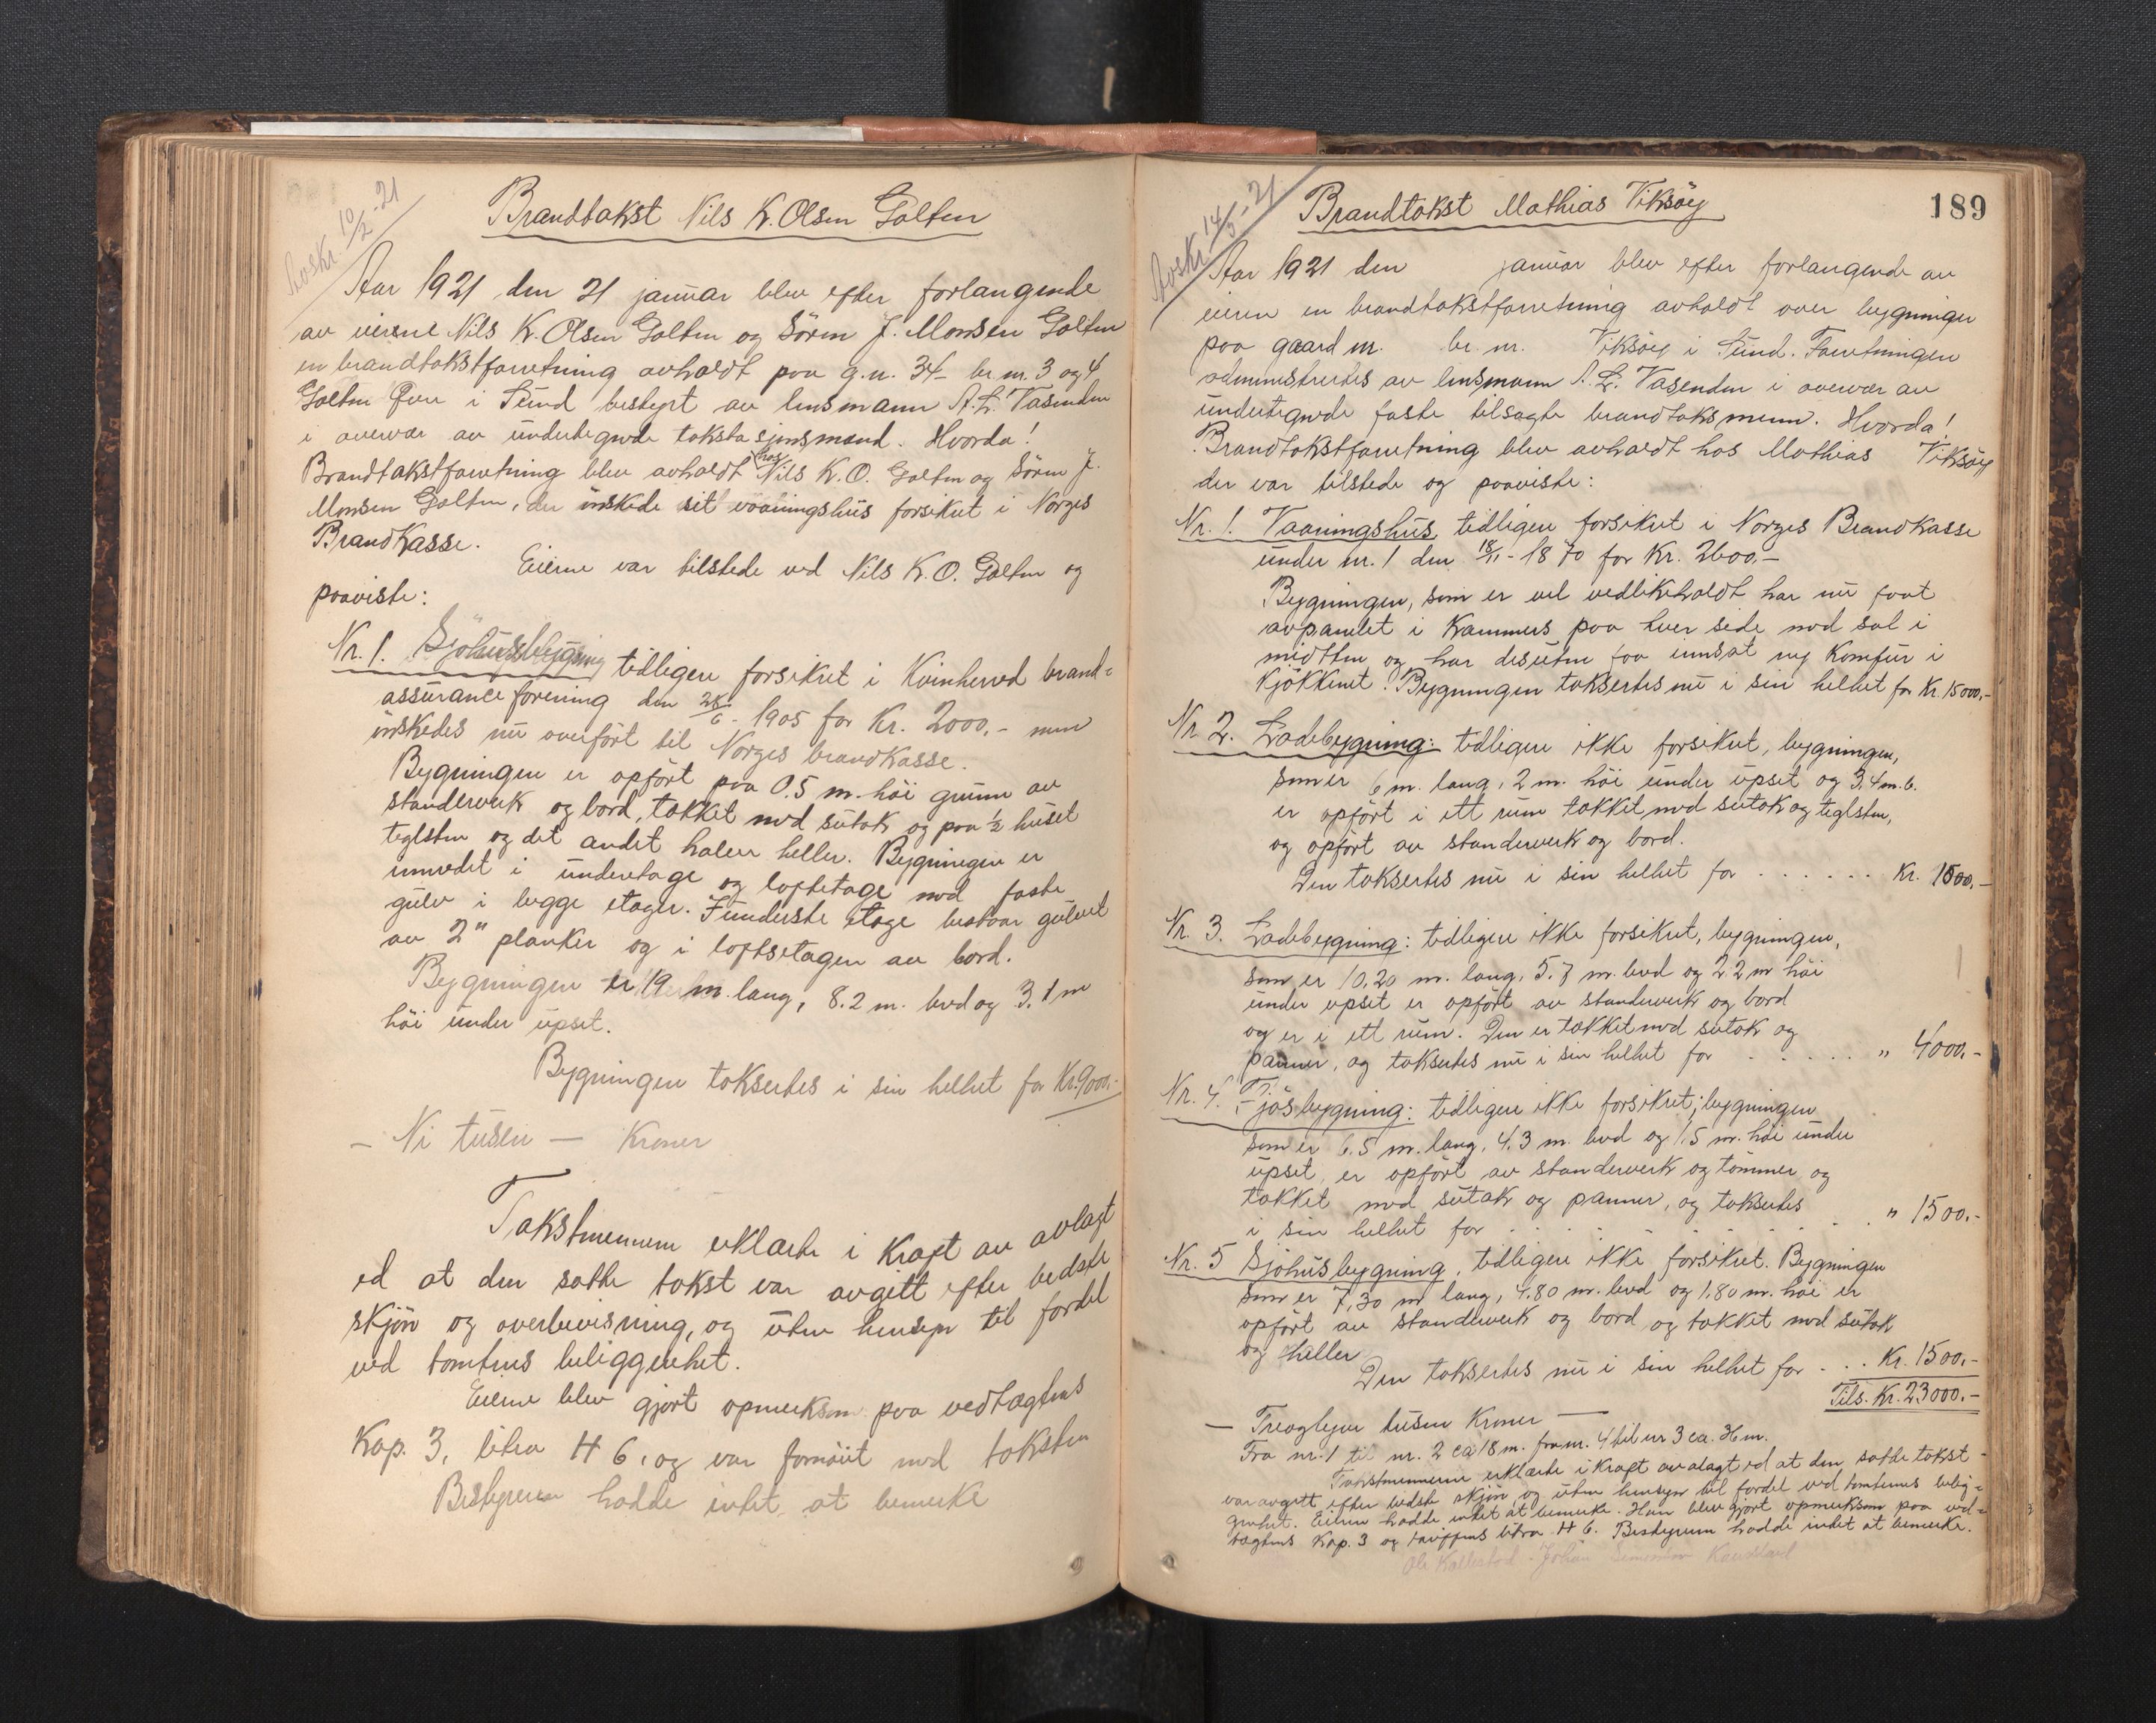 avskr. 10/2 - 21
Brandtakst Nils K. Olsen Golten
Aar 1921 den 21 januar blev efter forlangende
av eierne Nils K. Olsen Golten og Sören J. Monsen Golten
en brandtakstforretning avholdt paa g.n. 34 - br. nr. 3 og 4
Golten Övre i Sund bestyrt av lensmann A. L. Vasenden
i overvær av undertegnede takstasjonsmænd. Hvorda!
Brandtakstforretning blev avholdt hos Nils K. O. Golten og Sören J.
Monsen Golten, der önskede sit vaaningshus forsikret i Norges
Brandkasse.
Eierne var tilstede ved Nils K. O. Golten og
paaviste:
Nr. 1. Sjöhusbygning tidligere forsikret i Kvinherred brand=
assuranceforening den 28/6 - 1905 for Kr. 2000,- men
önskedes nu overfört til Norges brandkasse.
Bygningen er opfört paa 0.5 m. höi grunn av
standerverk og bord, takket med sutak og paa ½ huset
teglsten og det andet halve heller. Bygningen er
innredet i underetage og loftetage med faste
gulv i begge etager. I underste etage bestaar gulvet
av 2" planker og i loftsetagen av bord.
Bygningen er 19 m. lang, 8.2 m. bred og 3.1 m
höi under upset.
Bygningen taksertes i sin helhet for Kr. 9000,-
— Ni tusen — Kroner
Takstmennene erklærte i Kraft av avlagt
ed at den satte takst var avgitt efter bedste
skjön og overbevisning, og uten hensyn til fordel
ved tomtens beliggenhet.
Eierne blev gjort opmerksom paa vedtægtens
Kap. 3, litra H 6, og var fornöiet med taksten
Bestyreren hadde intet at bemerke
189
avskr. 14/5 - 21
Brandtakst Mathias Viksöy
Aar 1921 den januar blev efter forlangende av
eieren en brandtakstforretning avholdt over bygninger
paa gaard nr. br. nr. Viksöy i Sund. Forretningen
administrertes av lensmann A. L. Vasenden i overvær av
undertegnede faste tilsagte brandtaksmenn. Hvorda!
Brandtakstforretning blev avholdt hos Mathias Viksöy
der var tilstede og paaviste:
Nr. 1. Vaaningshus tidligere forsikret i Norges Brandkasse
under nr. 1 den 18/11 - 1870 for Kr. 2600,-
Bygningen, som er vel vedlikeholdt har nu faat
avpanelet i kammers paa hver side med sal i
midtten og har desuten faa innsat ny Komfur i
kjökkenet. Bygningen taksertes nu i sin helhet for Kr. 15000,-
Nr 2. Ladebygning: tidligere ikke forsikret, bygningen,
som er 6 m. lang, 2 m. höi under upset og 3,4 m. b.
er opfört i ett rum takket med sutak og teglsten,
og opfört av standerverk og bord.
Den taksertes nu i sin helhet for . . . . . . Kr. 1000,-
Nr. 3. Ladebygning: tidligere ikke forsikret, bygningen,
som er 10,20 m. lang, 5.7 m. bred og 2.2 m höi
under upset er opfört av standerverk og bord
og er i ett rum. Den er takket med sutak og
panner, og taksertes nu i sin helhet for . . . . . " 4000,-
Nr. 4. Fjösbygning: tidligere ikke forsikret; bygningen
som er 6.5 m. lang, 4.3 m. bred og 1.5 m. höi under
upset, er opfört av standerverk og tömmer og
takket med sutak og panner, og taksertes
i sin helhet for . . . . . . . . . " 1500,-
Nr. 5 Sjöhusbygning, tidligere ikke forsikret. Bygningen
som er 7,30 m lang, 4.80 m. bred og 1,80 m. höi er
opfört av standerverk og bord og takket med sutak
og heller
Den taksertes nu i sin helhet for . . . Kr. 1500,-
Tils. Kr. 23000.-
— Treogtyve tusen Kroner —
Fra nr. 1 til nr. 2 ca 18 m. fra nr. 4 til nr 3 ca. 36 m.
Takstmennene erklærte i Kraft av avlagt ed at den satte takst
var avgitt efter bedste skjön og uten hensyn til fordel ved tomtenes belig=
genhet. Eieren hadde intet at bemerke. Han blev gjort opmerksom paa ved=
tægtens Kap. 3 og tariffens litra H 6. Bestyreren hadde intet at bemerke.
Ole Kallestad - Johan Simonsen Kausland